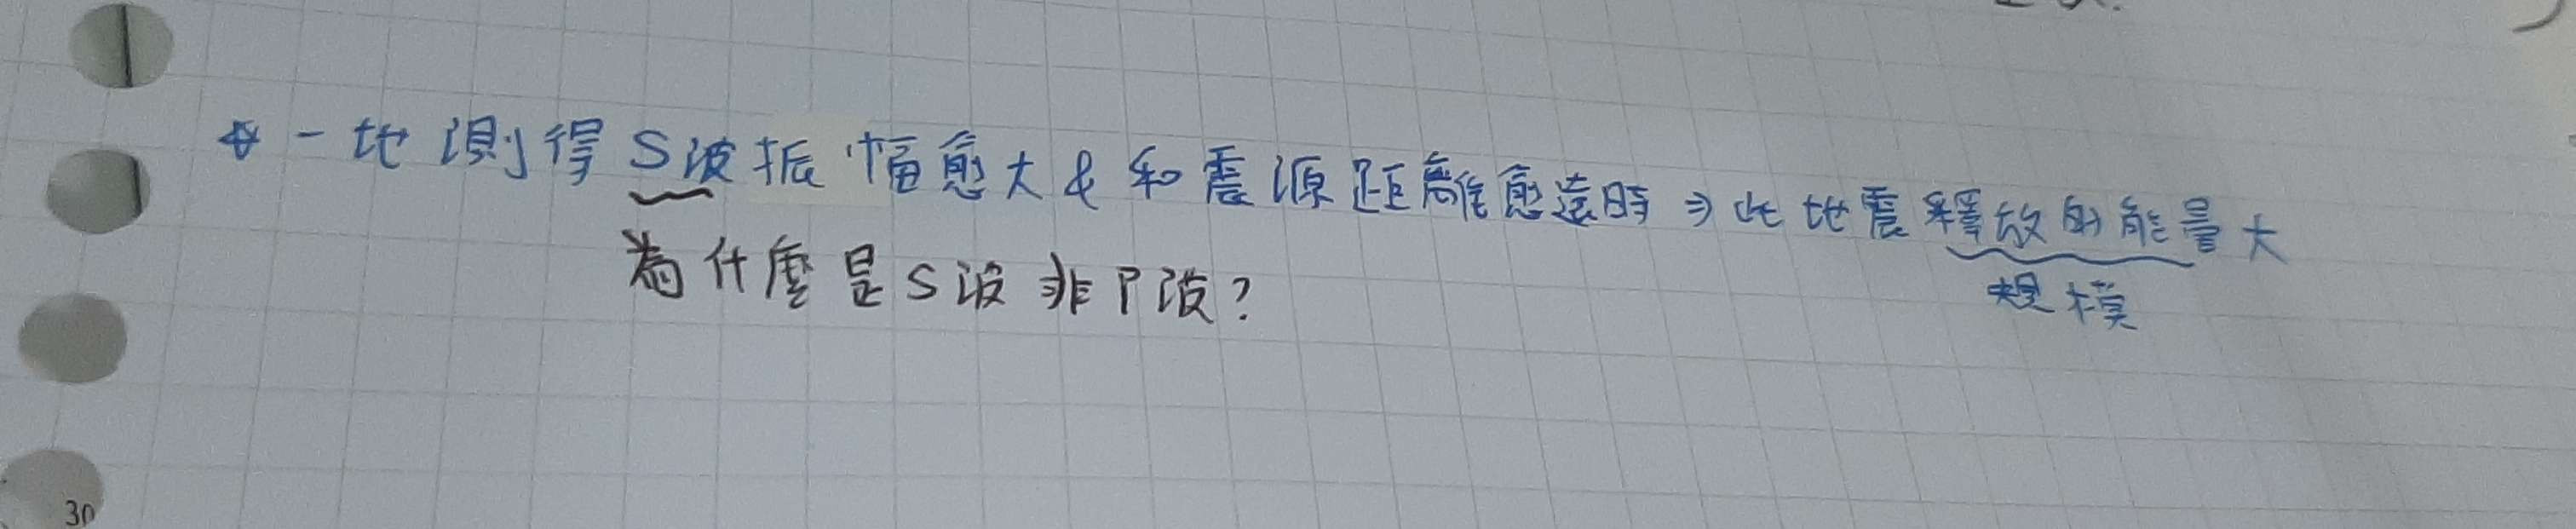 ☆一地測得S波振幅愈大&和震源距離愈遠時⇒此地震釋放的能量大
為什麼是S波非P波?
規模
30